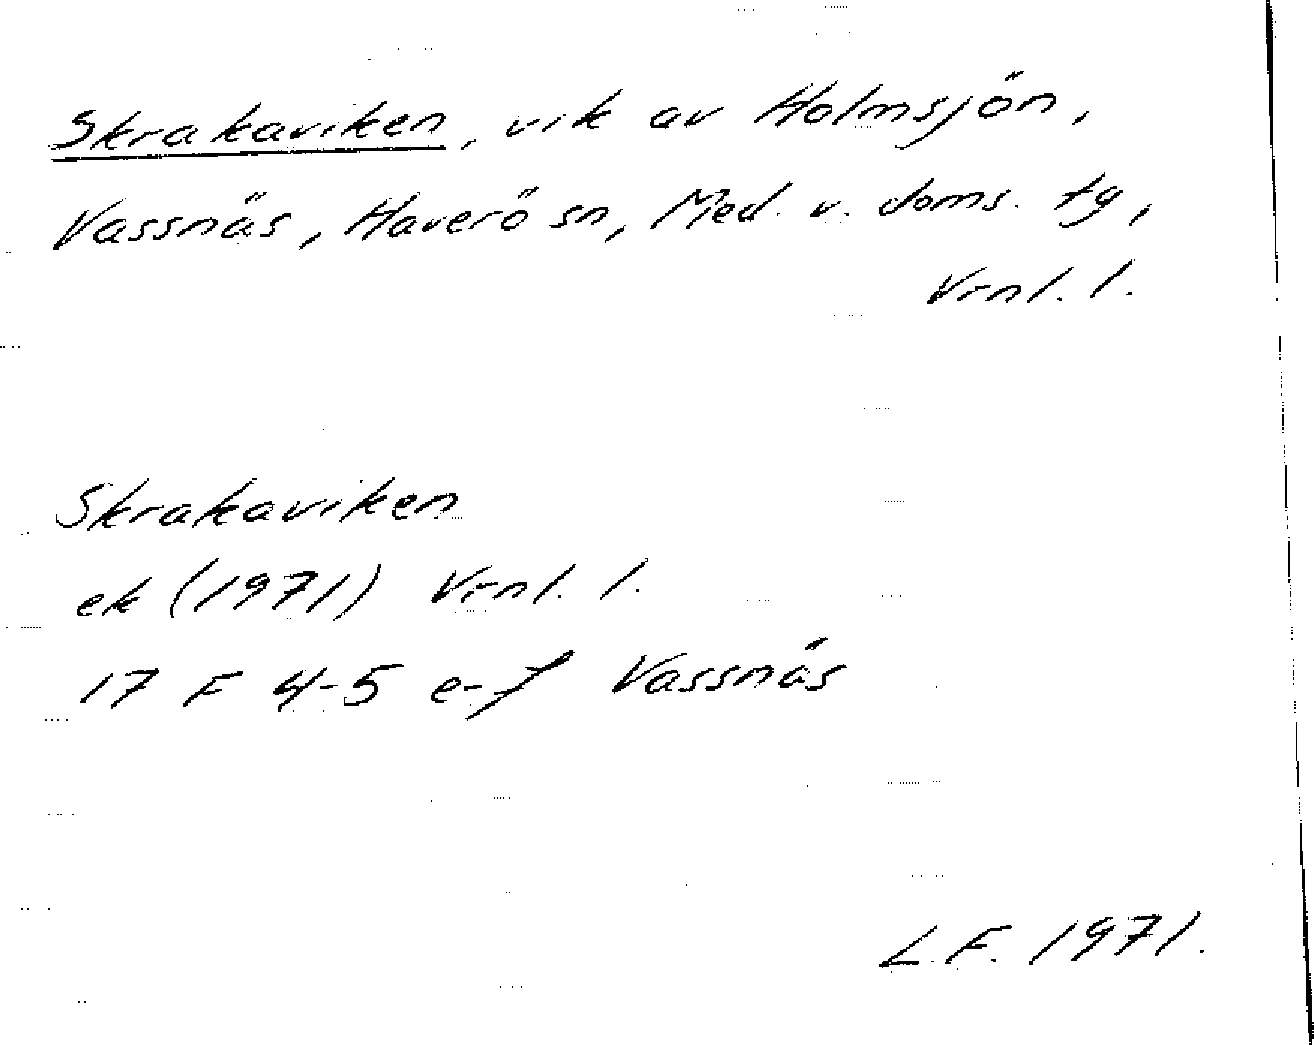 Skrakaviken, vik av Holmsjön,
Vassnäs, Haverö sn, Med. v. doms. tg,
Vrnl. l.
Skrakaviken
ek (1971) Vrnl. l.
17 F 4-5 e-f Vassnäs
L.F. 1971.